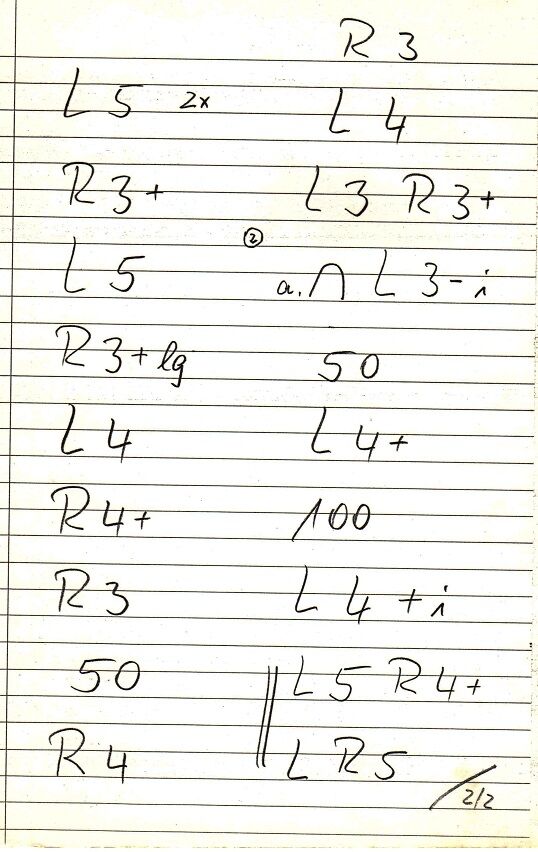 L 5 2x
R 3+
L 5
R 3+ lg
L 4
R 4+
R 3
50
R 4
R 3
L 4
L 3 R 3+
②
a. ∩ L 3- i
50
L 4+
100
L 4 + i
L 5 R 4+
L R 5
2/2